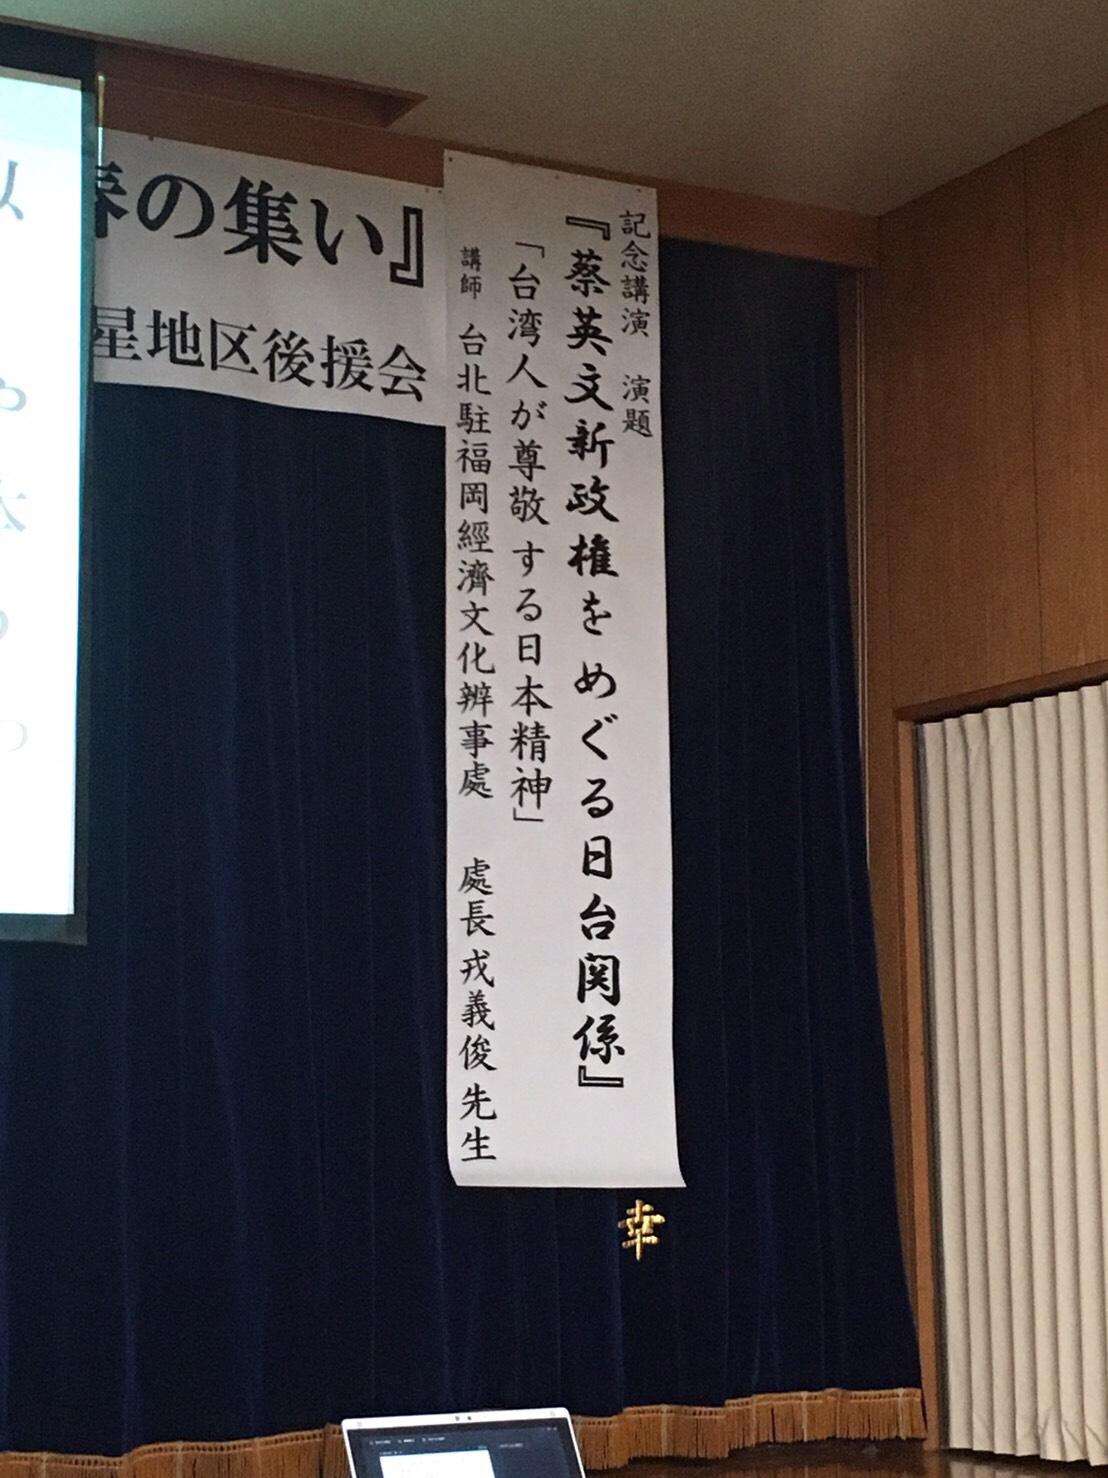 の集い』
星地区後援会
記念講演 演題
『蔡英文新政権をめぐる日台関係』
「台湾人が尊敬する日本精神」
講師 台北駐福岡經濟文化辦事處 處長 戎義俊 先生
幸